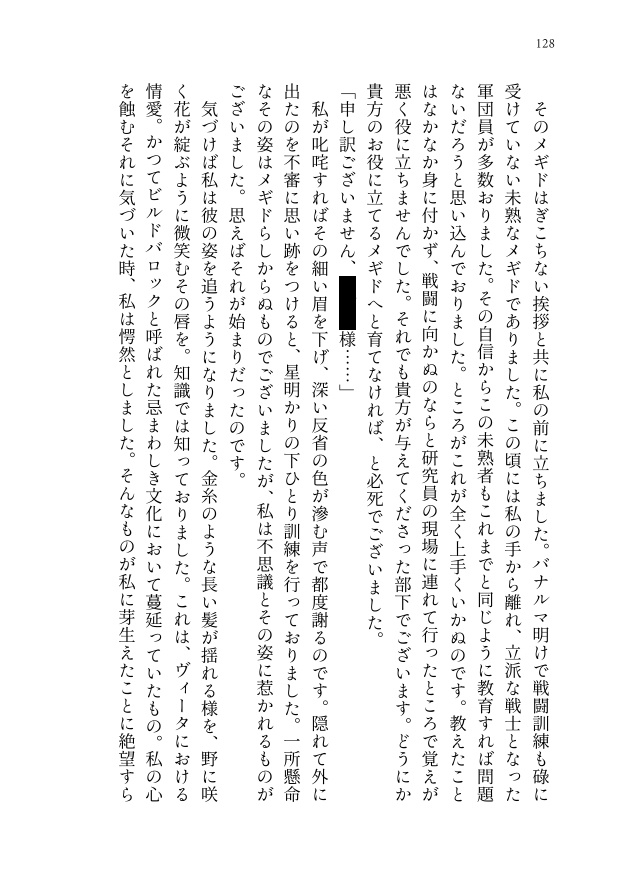 128
そのメギドはぎこちない挨拶と共に私の前に立ちました。バナルマ明けで戦闘訓練も碌に
受けていない未熟なメギドでありました。この頃には私の手から離れ、立派な戦士となった
軍団員が多数おりました。その自信からこの未熟者もこれまでと同じように教育すれば問題
ないだろうと思い込んでおりました。ところがこれが全く上手くいかぬのです。教えたこと
はなかなか身に付かず、戦闘に向かぬのならと研究員の現場に連れて行ったところで覚えが
悪く役に立ちませんでした。それでも貴方が与えてくださった部下でございます。どうにか
貴方のお役に立てるメギドへと育てなければ、と必死でございました。
「申し訳ございません、様……」
私が叱咤すればその細い眉を下げ、深い反省の色が滲む声で都度謝るのです。隠れて外に
出たのを不審に思い跡をつけると、星明かりの下ひとり訓練を行っておりました。一所懸命
なその姿はメギドらしからぬものでございましたが、私は不思議とその姿に惹かれるものが
ございました。思えばそれが始まりだったのです。
気づけば私は彼の姿を追うようになりました。金糸のような長い髪が揺れる様を、野に咲
く花が綻ぶように微笑むその唇を。知識では知っておりました。これは、ヴィータにおける
情愛。かつてビルドバロックと呼ばれた忌まわしき文化において蔓延っていたもの。私の心
を蝕むそれに気づいた時、私は愕然としました。そんなものが私に芽生えたことに絶望すら